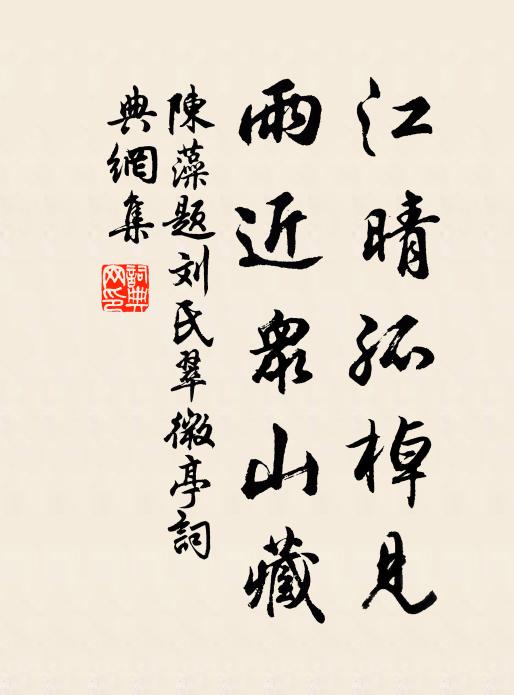 江晴孤棹見
雨近衆山藏
陳藻題刘氏翠微亭詞
典網集
詞典网印